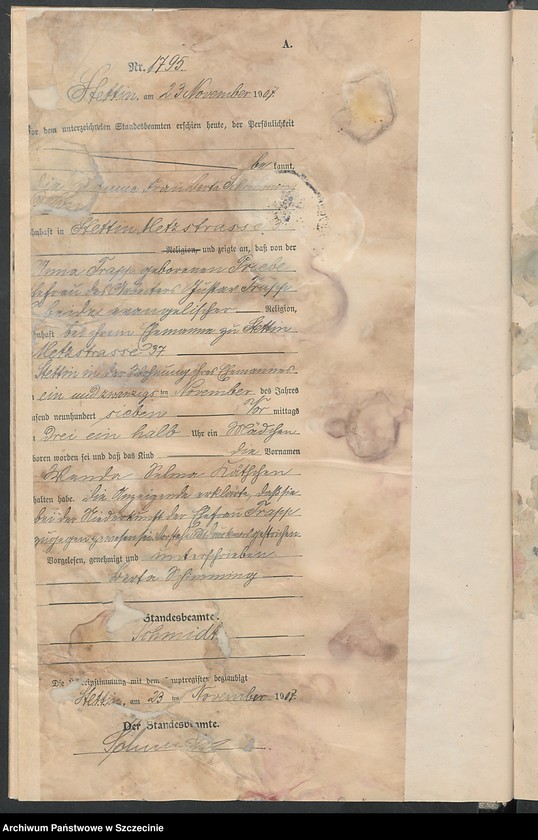 A.
Nr. 1795.
Stettin, am 23 November 1907.
vor dem unterzeichneten Standesbeamten erschien heute, der Persönlichkeit
be kannt,
die Hebamme Frau Berta Schimming
wohnhaft in Stettin, Metzstrasse
Religion, und zeigte an, daß von der
Trapp geborenen Friebe
Ehefrau des Arbeiters Gustav Trapp
beide evangelischer Religion,
wohnhaft bei ihrem Ehemanne zu Stettin
Metzstrasse 37
Stettin in der Wohnung ihres Ehemannes
ein und zwanzigsten November des Jahres
tausend neunhundert sieben Vor mittags
drei ein halb Uhr ein Mädchen
geboren worden sei und daß das Kind die Vornamen
Wanda Selma Käthchen
erhalten habe. Die Anzeigende erklärte, daß sie
bei der Niederkunft der Ehefrau Trapp
zugegen gewesen sei. gestrichen.
Vorgelesen, genehmigt und unterschrieben
Berta Schimming
Standesbeamte.
Schmidt
Die Übereinstimmung mit dem Hauptregister beglaubigt
Stettin, am 23 ten November 1907.
Der Standesbeamte.
Archiwum Państwowe w Szczecinie